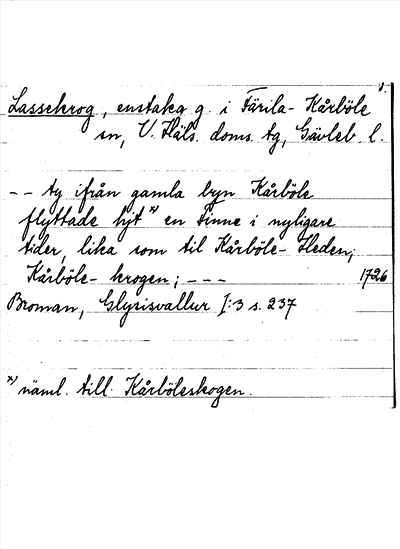 Lassekrog, enstaka g. i Färila- Kårböle
sn, V. Häls. doms. tg, Gävleb. l.
-- ty ifrån gamla byn Kårböle
flyttade hyt x) en Finne i nyligare
tider, lika som til Kårböle- Heden,
Kårböle- krogen; --- 1726
Broman, Glysisvallur I:3 s. 237
x) näml. till Kårböleskogen.